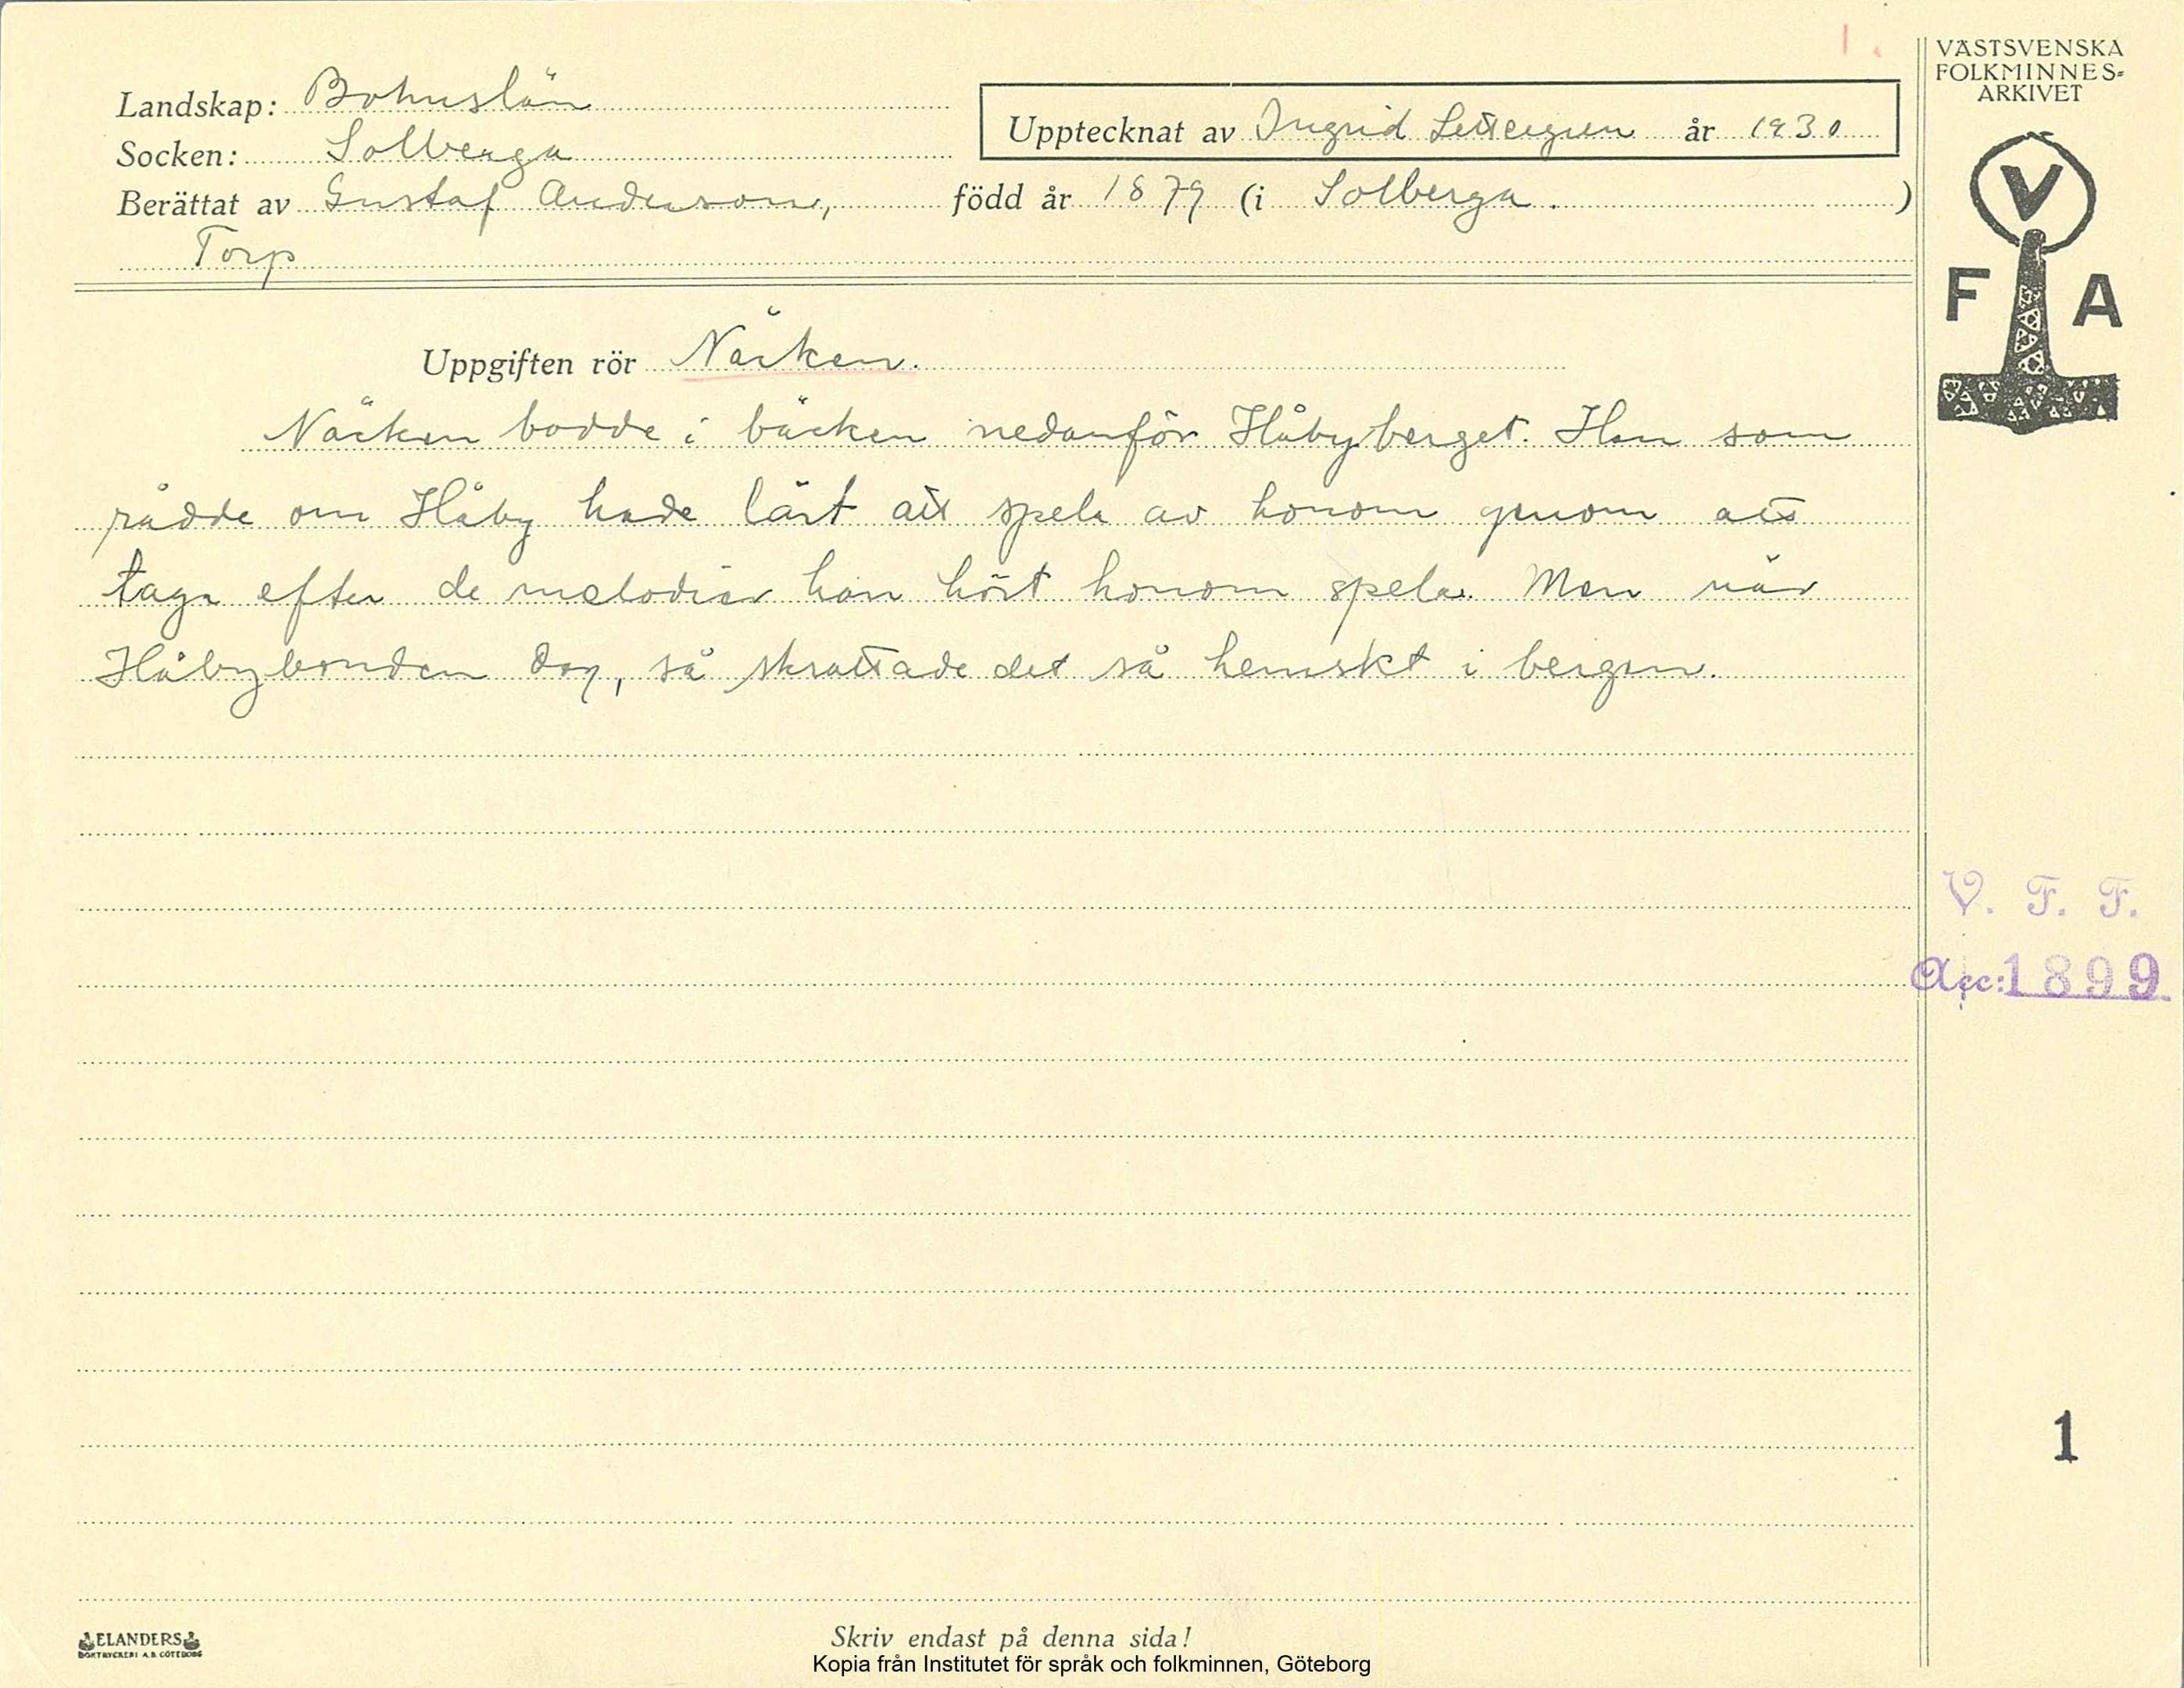 1.
VÄSTSVENSKA
FOLKMINNES=
ARKIVET
Landskap: Bohuslän
Upptecknat av Ingrid Settergren år 1930
Socken: Solberga
Berättat av Gustaf Anderson, född år 1879 (i Solberga. )
Torp
V
F A
Uppgiften rör Näcken.
Näcken bodde i bäcken nedanför Håbyberget. Han som
rådde om Håby hade lärt att spela av honom genom att
taga efter de melodier han hört honom spela. Men när
Håbybonden dog, så skrattade det så hemskt i bergen.
V. F. F.
Acc: 1899
1
ELANDERS
BOKTRYCKERI A.B. GÖTEBORG
Skriv endast på denna sida!
Kopia från Institutet för språk och folkminnen, Göteborg